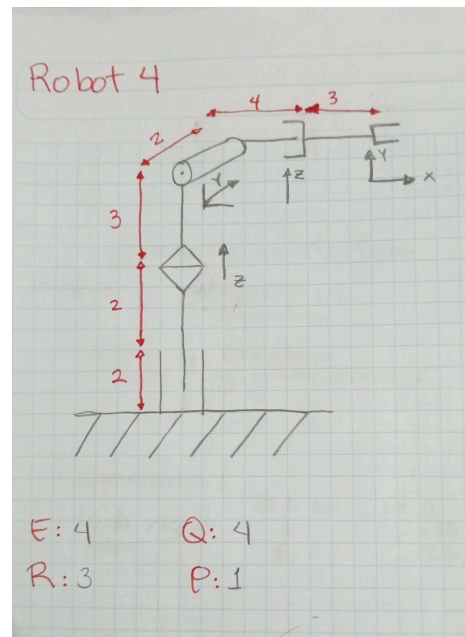 Robot 4
4
3
2
Y
Z
Y
X
3
Z
2
2
E: 4 Q: 4
R: 3 P: 1